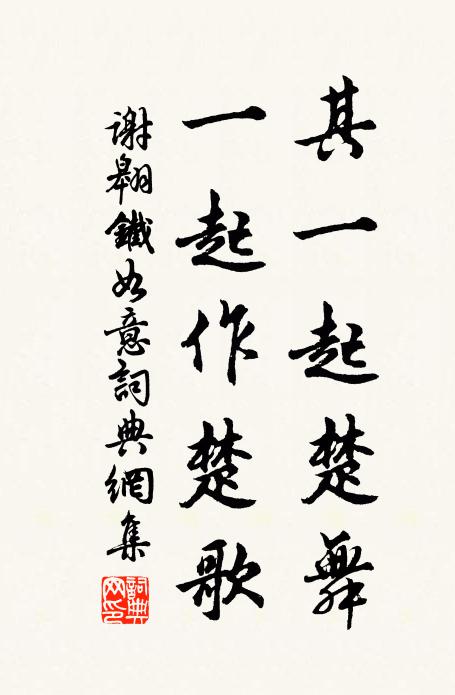 其一起楚舞
一起作楚歌
謝翱鐵如意詞典網集
詞典网印